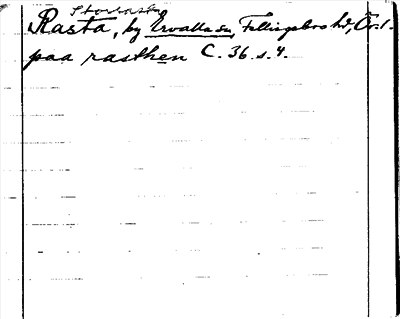 Storrasta
Rasta, by Ervalla sn, Fellingsbro hd, Ör. l.
paa rasthen C. 36. s. 4.